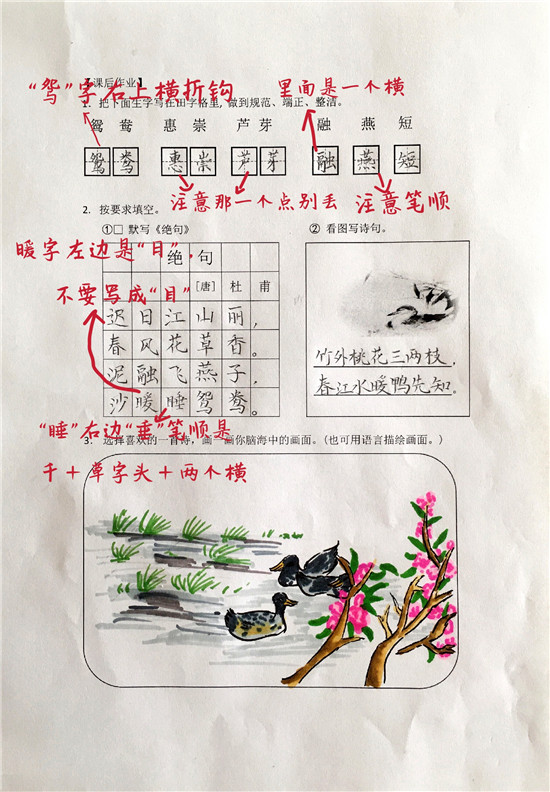 【课后作业】
“鸳”字右上横折钩
里面是一个横
1. 把下面生字写在田字格里, 做到规范、端正、整洁。
鸳 鸯 惠 崇 芦 芽 融 燕 短
鸳 鸯 惠 崇 芦 芽 融 燕 短
注意那一个点别丢
注意笔顺
2. 按要求填空。
①□ 默写《绝句》
② 看图写诗句。
暖字左边是“日”,
不要写成“目”
绝 句
[唐] 杜 甫
迟日江山丽，
春风花草香。
泥融飞燕子，
沙暖睡鸳鸯。
竹外桃花三两枝，
春江水暖鸭先知。
“睡”右边“垂”笔顺是
3. 选择喜欢的一首诗，画一画你脑海中的画面。(也可用语言描绘画面。)
千＋草字头＋两个横